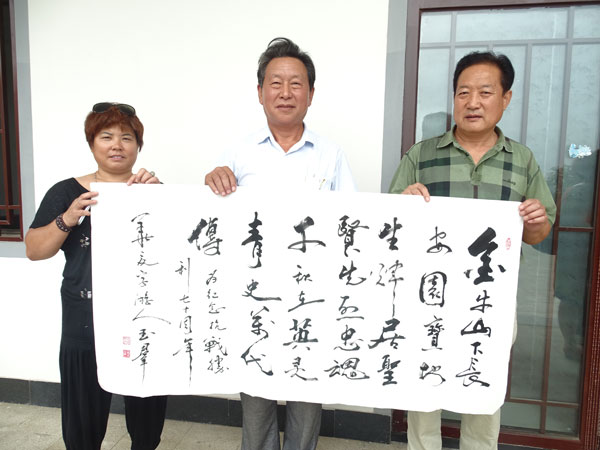 金牛山下長
安園寶地
生輝居聖
賢先烈忠魂
千秋在英灵
青史萬代
傳 为纪念抗戰勝
利七十周年
華夏字游人玉